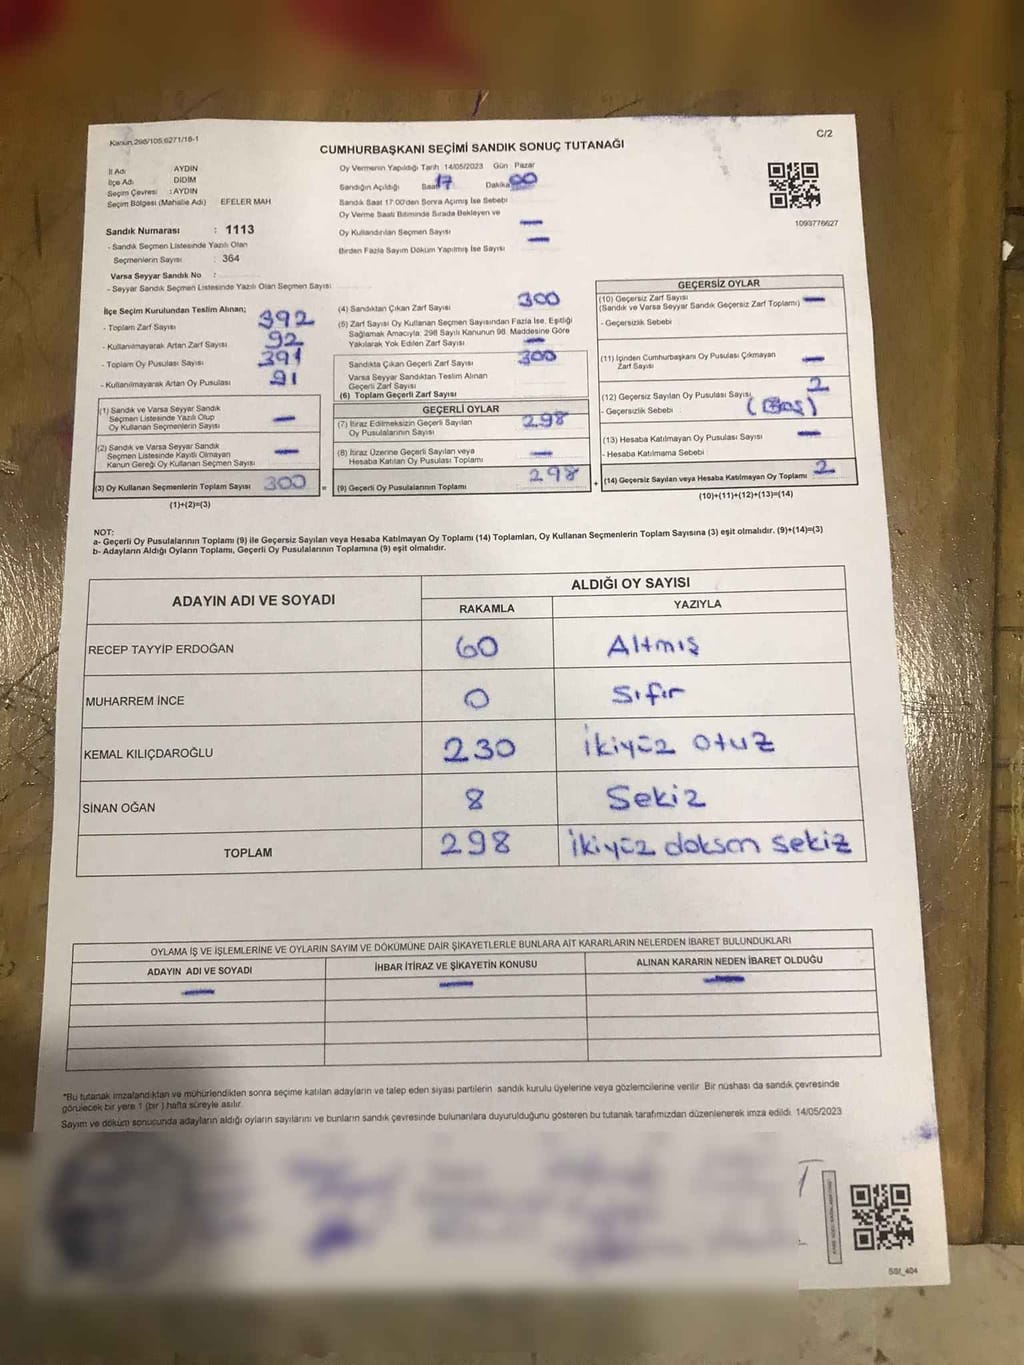 Kanun,298/105;6271/18-1
C/2
CUMHURBAŞKANI SEÇİMİ SANDIK SONUÇ TUTANAĞI
İl Adı AYDIN
İlçe Adı DİDİM
Seçim Çevresi : AYDIN
Seçim Bölgesi (Mahalle Adı) EFELER MAH
Sandık Numarası : 1113
- Sandık Seçmen Listesinde Yazılı Olan
Seçmenlerin Sayısı : 364
Varsa Seyyar Sandık No :
- Seyyar Sandık Seçmen Listesinde Yazılı Olan Seçmen Sayısı
Oy Vermenin Yapıldığı Tarih 14/05/2023 Gün Pazar
Sandığın Açıldığı Saat 17 Dakika 00
Sandık Saat 17.00'den Sonra Açımış İse Sebebi
Oy Verme Saati Bitiminde Sırada Bekleyen ve
Oy Kullandırılan Seçmen Sayısı —
Birden Fazla Sayım Döküm Yapılmış İse Sayısı —
1093776627
İlçe Seçim Kurulundan Teslim Alınan;
- Toplam Zarf Sayısı 392
- Kullanılmayarak Artan Zarf Sayısı 92
- Toplam Oy Pusulası Sayısı 391
- Kullanılmayarak Artan Oy Pusulası 91
(1) Sandık ve Varsa Seyyar Sandık
Seçmen Listesinde Yazılı Olup
Oy Kullanan Seçmenlerin Sayısı —
(2) Sandık ve Varsa Seyyar Sandık
Seçmen Listesinde Kayıtlı Olmayan
Kanun Gereği Oy Kullanan Seçmen Sayısı —
(3) Oy Kullanan Seçmenlerin Toplam Sayısı 300 =
(1)+(2)=(3)
(4) Sandıktan Çıkan Zarf Sayısı 300
(5) Zarf Sayısı Oy Kullanan Seçmen Sayısından Fazla İse, Eşitliği
Sağlamak Amacıyla; 298 Sayılı Kanunun 98. Maddesine Göre
Yakılarak Yok Edilen Zarf Sayısı —
Sandıkta Çıkan Geçerli Zarf Sayısı 300
Varsa Seyyar Sandıktan Teslim Alınan
Geçerli Zarf Sayısı
(6) Toplam Geçerli Zarf Sayısı
GEÇERLİ OYLAR
(7) İtiraz Edilmeksizin Geçerli Sayılan
Oy Pusulalarının Sayısı 298
(8) İtiraz Üzerine Geçerli Sayılan veya
Hesaba Katılan Oy Pusulası Toplamı —
(9) Geçerli Oy Pusulalarının Toplamı 298 +
GEÇERSİZ OYLAR
(10) Geçersiz Zarf Sayısı —
(Sandık ve Varsa Seyyar Sandık Geçersiz Zarf Toplamı)
- Geçersizlik Sebebi
(11) İçinden Cumhurbaşkanı Oy Pusulası Çıkmayan
Zarf Sayısı —
(12) Geçersiz Sayılan Oy Pusulası Sayısı 2
- Geçersizlik Sebebi (Boş)
(13) Hesaba Katılmayan Oy Pusulası Sayısı —
- Hesaba Katılmama Sebebi
(14) Geçersiz Sayılan veya Hesaba Katılmayan Oy Toplamı 2
(10)+(11)+(12)+(13)=(14)
NOT:
a- Geçerli Oy Pusulalarının Toplamı (9) ile Geçersiz Sayılan veya Hesaba Katılmayan Oy Toplamı (14) Toplamları, Oy Kullanan Seçmenlerin Toplam Sayısına (3) eşit olmalıdır. (9)+(14)=(3)
b- Adayların Aldığı Oyların Toplamı, Geçerli Oy Pusulalarının Toplamına (9) eşit olmalıdır.
ADAYIN ADI VE SOYADI ALDIĞI OY SAYISI
RAKAMLA YAZIYLA
RECEP TAYYİP ERDOĞAN 60 Altmış
MUHARREM İNCE 0 Sıfır
KEMAL KILIÇDAROĞLU 230 İkiyüz otuz
SİNAN OĞAN 8 Sekiz
TOPLAM 298 İkiyüz doksan sekiz
OYLAMA İŞ VE İŞLEMLERİNE VE OYLARIN SAYIM VE DÖKÜMÜNE DAİR ŞİKAYETLERLE BUNLARA AİT KARARLARIN NELERDEN İBARET BULUNDUKLARI
ADAYIN ADI VE SOYADI İHBAR İTİRAZ VE ŞİKAYETİN KONUSU ALINAN KARARIN NEDEN İBARET OLDUĞU
— — —
*Bu tutanak imzalandıktan ve mühürlendikten sonra seçime katılan adayların ve talep eden siyasi partilerin sandık kurulu üyelerine veya gözlemcilerine verilir. Bir nüshası da sandık çevresinde
görülecek bir yere 1 (bir ) hafta süreyle asılır.
Sayım ve döküm sonucunda adayların aldığı oyların sayılarını ve bunların sandık çevresinde bulunanlara duyurulduğunu gösteren bu tutanak tarafımızdan düzenlenerek imza edildi. 14/05/2023